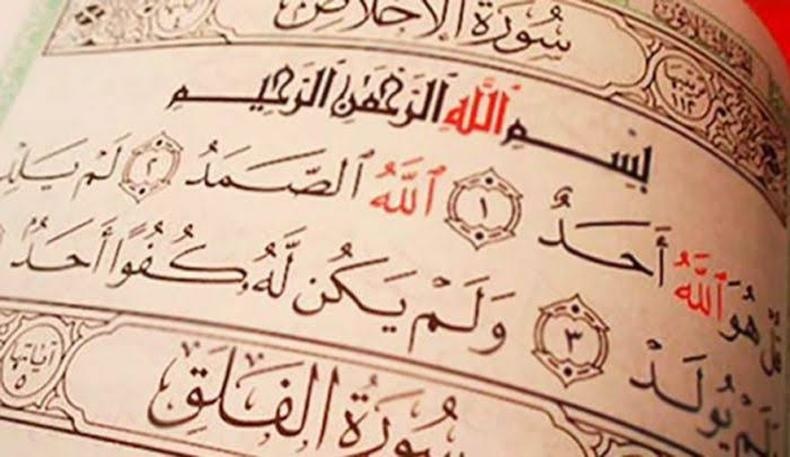 سُورَةُ الْإِخْلَاصِ
١١٢
بِسْمِ ٱللَّهِ ٱلرَّحْمَٰنِ ٱلرَّحِيمِ
هُوَ ٱللَّهُ أَحَدٌ ١ ٱللَّهُ ٱلصَّمَدُ ٢ لَمْ يَلِدْ
لَمْ يُولَدْ ٣ وَلَمْ يَكُن لَّهُۥ كُفُوًا أَحَدٌ
سُورَةُ الْفَلَقِ
آيَاتُهَا
٥